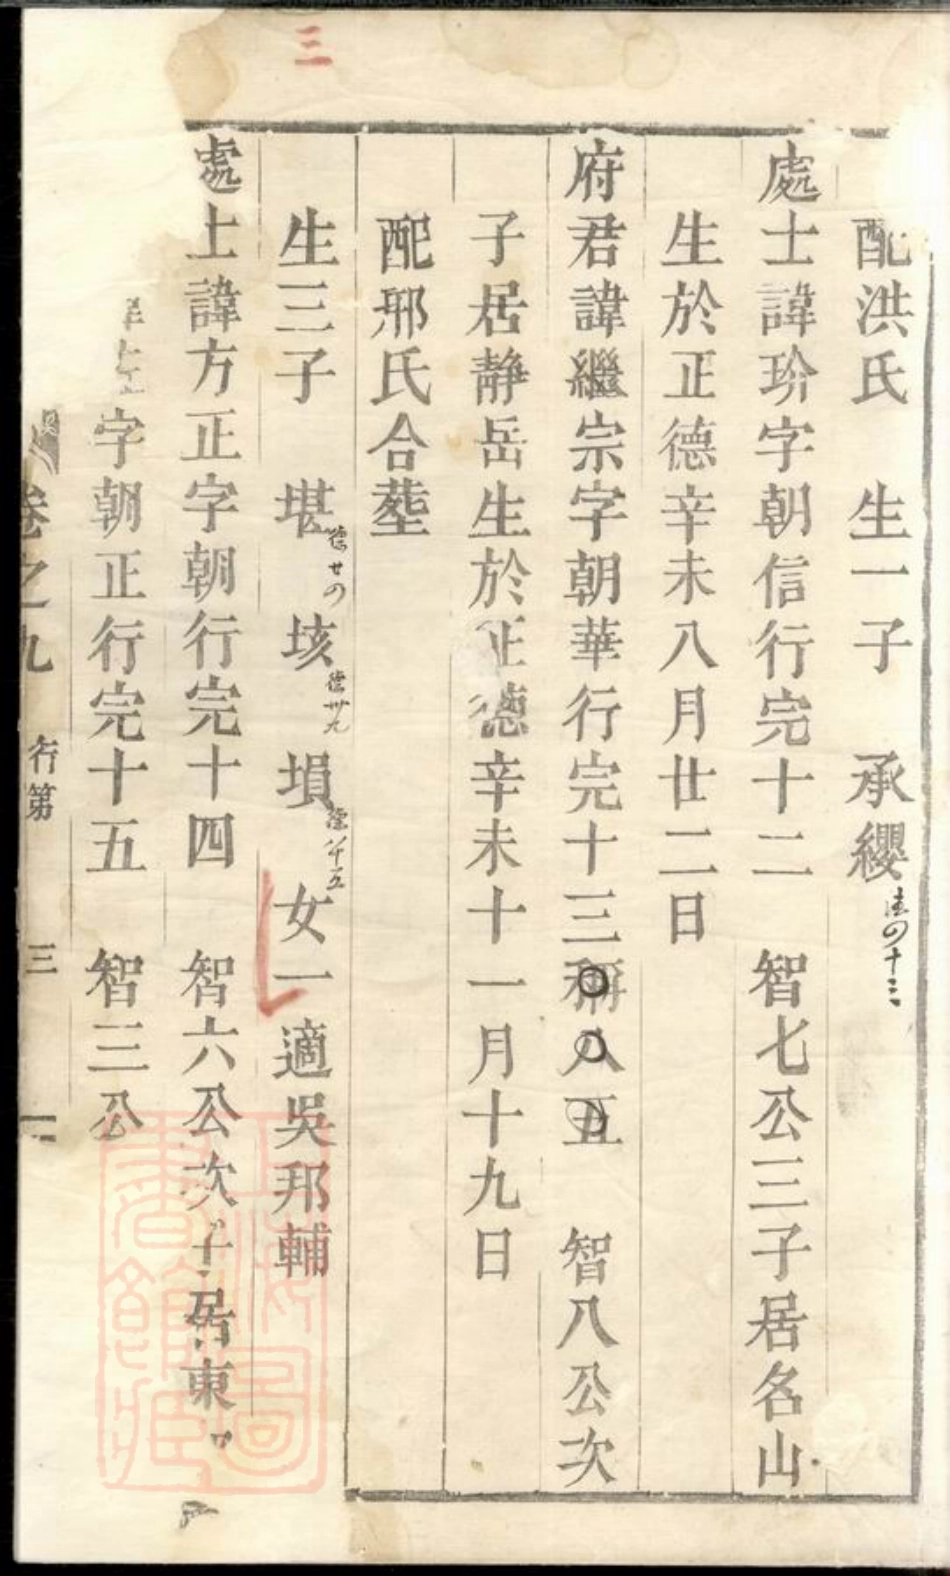 三
配洪氏　生一子　承纓
處士諱玠字朝信行完十二　智七公三子居名山
生於正德辛未八月廿二日
府君諱繼宗字朝華行完十三稱八五　智八公次
子居靜岳生於正德辛未十一月十九日
配邢氏合塟
生三子　堪　垓　塤　女一適吳邦輔
處士諱方正字朝行完十四　智六公次子居東
字朝正行完十五　智三公
卷之九　行第　三
上海圖書館藏